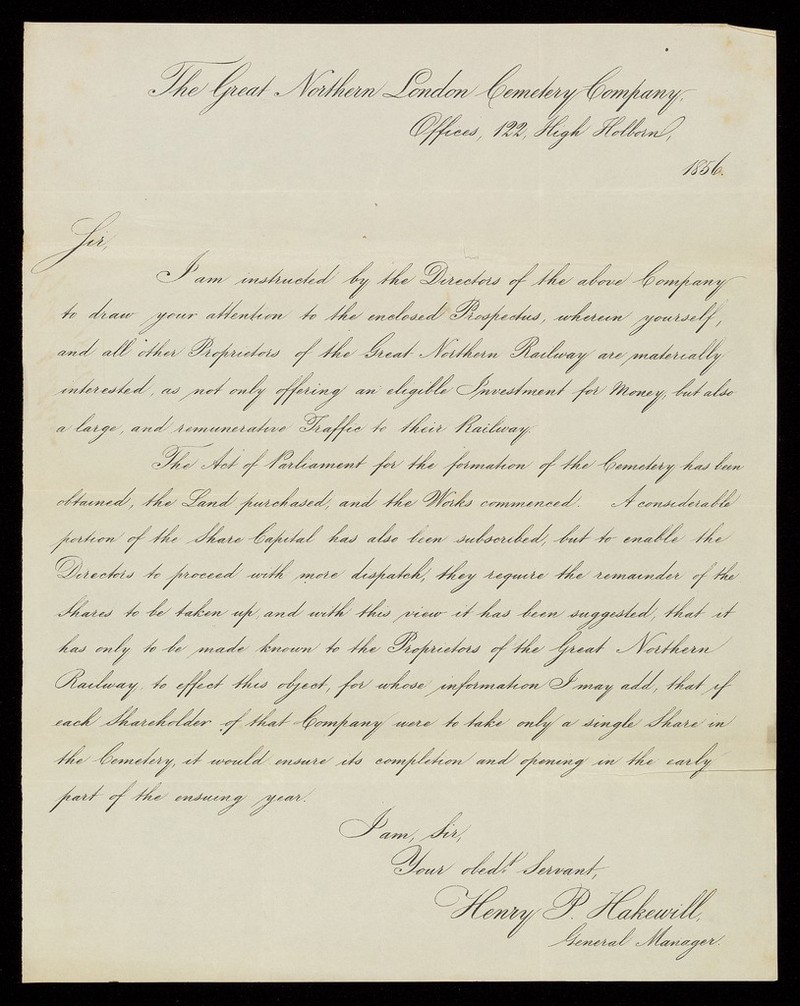 The Great Northern London Cemetery Company,
Offices, 122, High Holborn,
1856.
Sir,
I am instructed by the Directors of the above Company
to draw your attention to the enclosed Prospectus, wherein yourself,
and all other Proprietors of the Great Northern Railway are materially
interested, as not only offering an eligible Investment for Money, but also
a large, and remunerative Traffic to their Railway.
The Act of Parliament for the formation of the Cemetery has been
obtained, the Land purchased, and the Works commenced. A considerable
portion of the Share Capital has also been subscribed, but to enable the
Directors to proceed with more dispatch, they require the remainder of the
Shares to be taken up, and with this view it has been suggested, that it
has only to be made known to the Proprietors of the Great Northern
Railway, to effect this object, for whose information I may add, that if
each Shareholder of that Company were to take only a single Share in
the Cemetery, it would ensure its completion and opening in the early
part of the ensuing year.
I am, Sir,
Your obedt. Servant,
Henry P. Hakewill,
General Manager.